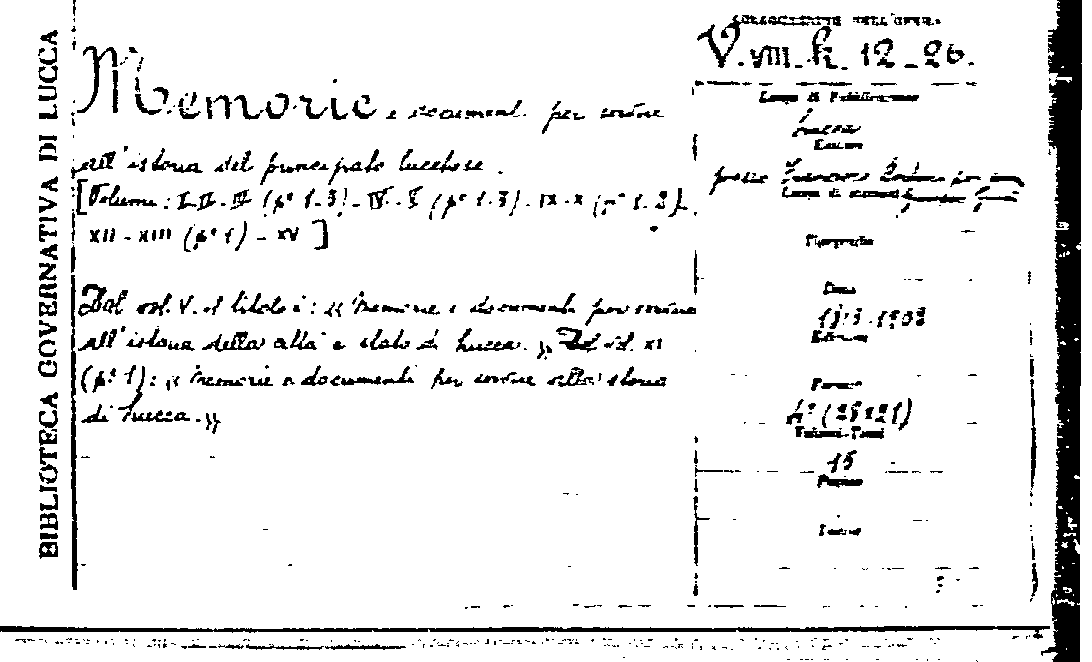 BIBLIOTECA GOVERNATIVA DI LUCCA
Memorie e documenti per servire
all'istoria del principato lucchese.
[Volume: I-II-III (pe 1-3)-IV-V (pe 1-3)-IX-X (pe 1-2)-
XII-XIII (pe 1)-XV]
Dal vol. V. il titolo è: « Memorie e documenti per servire
all'istoria della città e stato di Lucca. » Dal vol. XI
(pe 1): « Memorie e documenti per servire alla storia
di Lucca. »
COLLOCAZIONE DELL'OPERA
V. VIII. k. 12-26.
Luogo di Pubblicazione
Lucca
Editore
presso Francesco per
Luogo di stampa
Tipografia
Data
Edizione
Formato
4° (29x21)
Volumi-Tomi
15